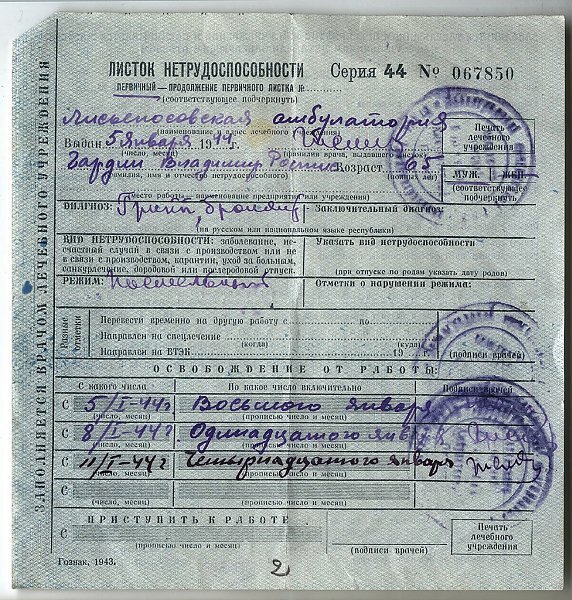 ЗАПОЛНЯЕТСЯ ВРАЧОМ ЛЕЧЕБНОГО УЧРЕЖДЕНИЯ
ЛИСТОК НЕТРУДОСПОСОБНОСТИ Серия 44 № 067850
ПЕРВИЧНЫЙ — ПРОДОЛЖЕНИЕ ПЕРВИЧНОГО ЛИСТКА №
(соответствующее подчеркнуть)
амбулатория
(наименование лечебного учреждения)
Выдан 5 января 1944 г.
(число, месяц) (фамилия врача, выдавшего листок)
Печать лечебного учреждения
Гардин Владимир Возраст 65
(фамилия, имя и отчество нетрудоспособного) (полных лет)
МУЖ. ЖЕН.
(соответствующее подчеркнуть)
(место работы: наименование предприятия или учреждения)
ДИАГНОЗ: Грипп, бронхит Заключительный диагноз
(на русском или национальном языке республики)
ВИД НЕТРУДОСПОСОБНОСТИ: заболевание, не-
счастный случай в связи с производством или не
в связи с производством, карантин, уход за больным,
санкурлечение, дородовой или послеродовой отпуск.
Указать вид нетрудоспособности
(при отпуске по родам указать дату родов)
РЕЖИМ: Постельный Отметки о нарушении режима:
Разные отметки
Перевести временно на другую работу с по
Направлен на спецлечение
(куда) (когда)
Направлен на ВТЭК 19 г.
(подписи врачей)
ОСВОБОЖДЕНИЕ ОТ РАБОТЫ:
С какого числа По какое число включительно Подписи врачей
С 5/I-44г Восьмого января
(число, месяц) (прописью число и месяц)
С 8/I-44г Одиннадцатого января
(число, месяц) (прописью число и месяц)
С 11/I-44г Четырнадцатого январь
(число, месяц) (прописью число и месяц)
С
(число, месяц) (прописью число и месяц)
ПРИСТУПИТЬ К РАБОТЕ с
(прописью число и месяц) (подписи врачей)
Печать лечебного учреждения
Гознак, 1943.
2